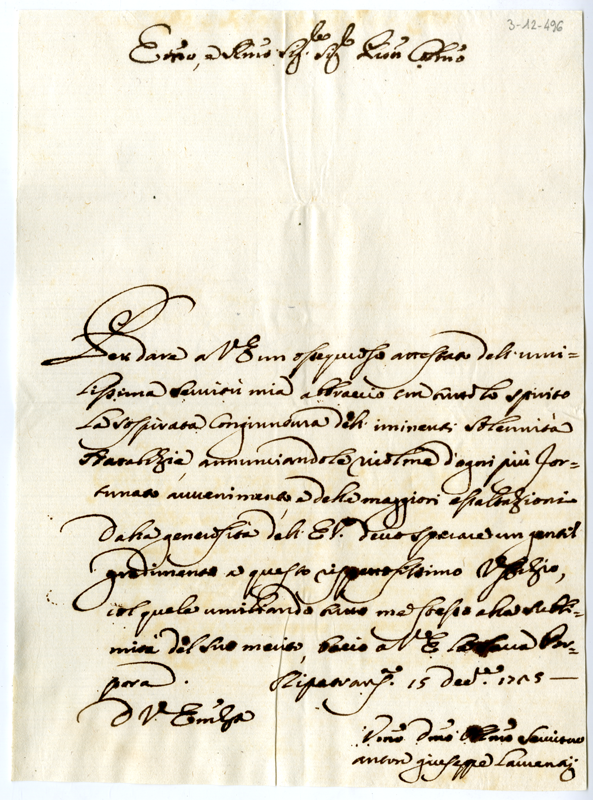 3-12-496
Emo, e Rmo Sig.r Sig.r Pron Colmo
Per dare a V.E. un ossequioso attestato dell'umi=
lissima servitù mia abbraccio con tutto lo spirito
la sospirata congiuntura dell'iminenti solennità
Natalizie, annunciandole ricolme d'ogni più for=
tunato avvenimento, e delle maggiori esaltazioni
Dalla generosità dell'E.V. devo sperare un gentil
gradimento a questo rispettosissimo Uffizio,
col quale umiliando tutto me stesso alla subli=
mità del suo merito, bacio a V.E. la Sacra Por=
pora. Ripatrans.e 15 Dec.e
D V. Emza
Umo Dmo Servitore
Anton Giuseppe